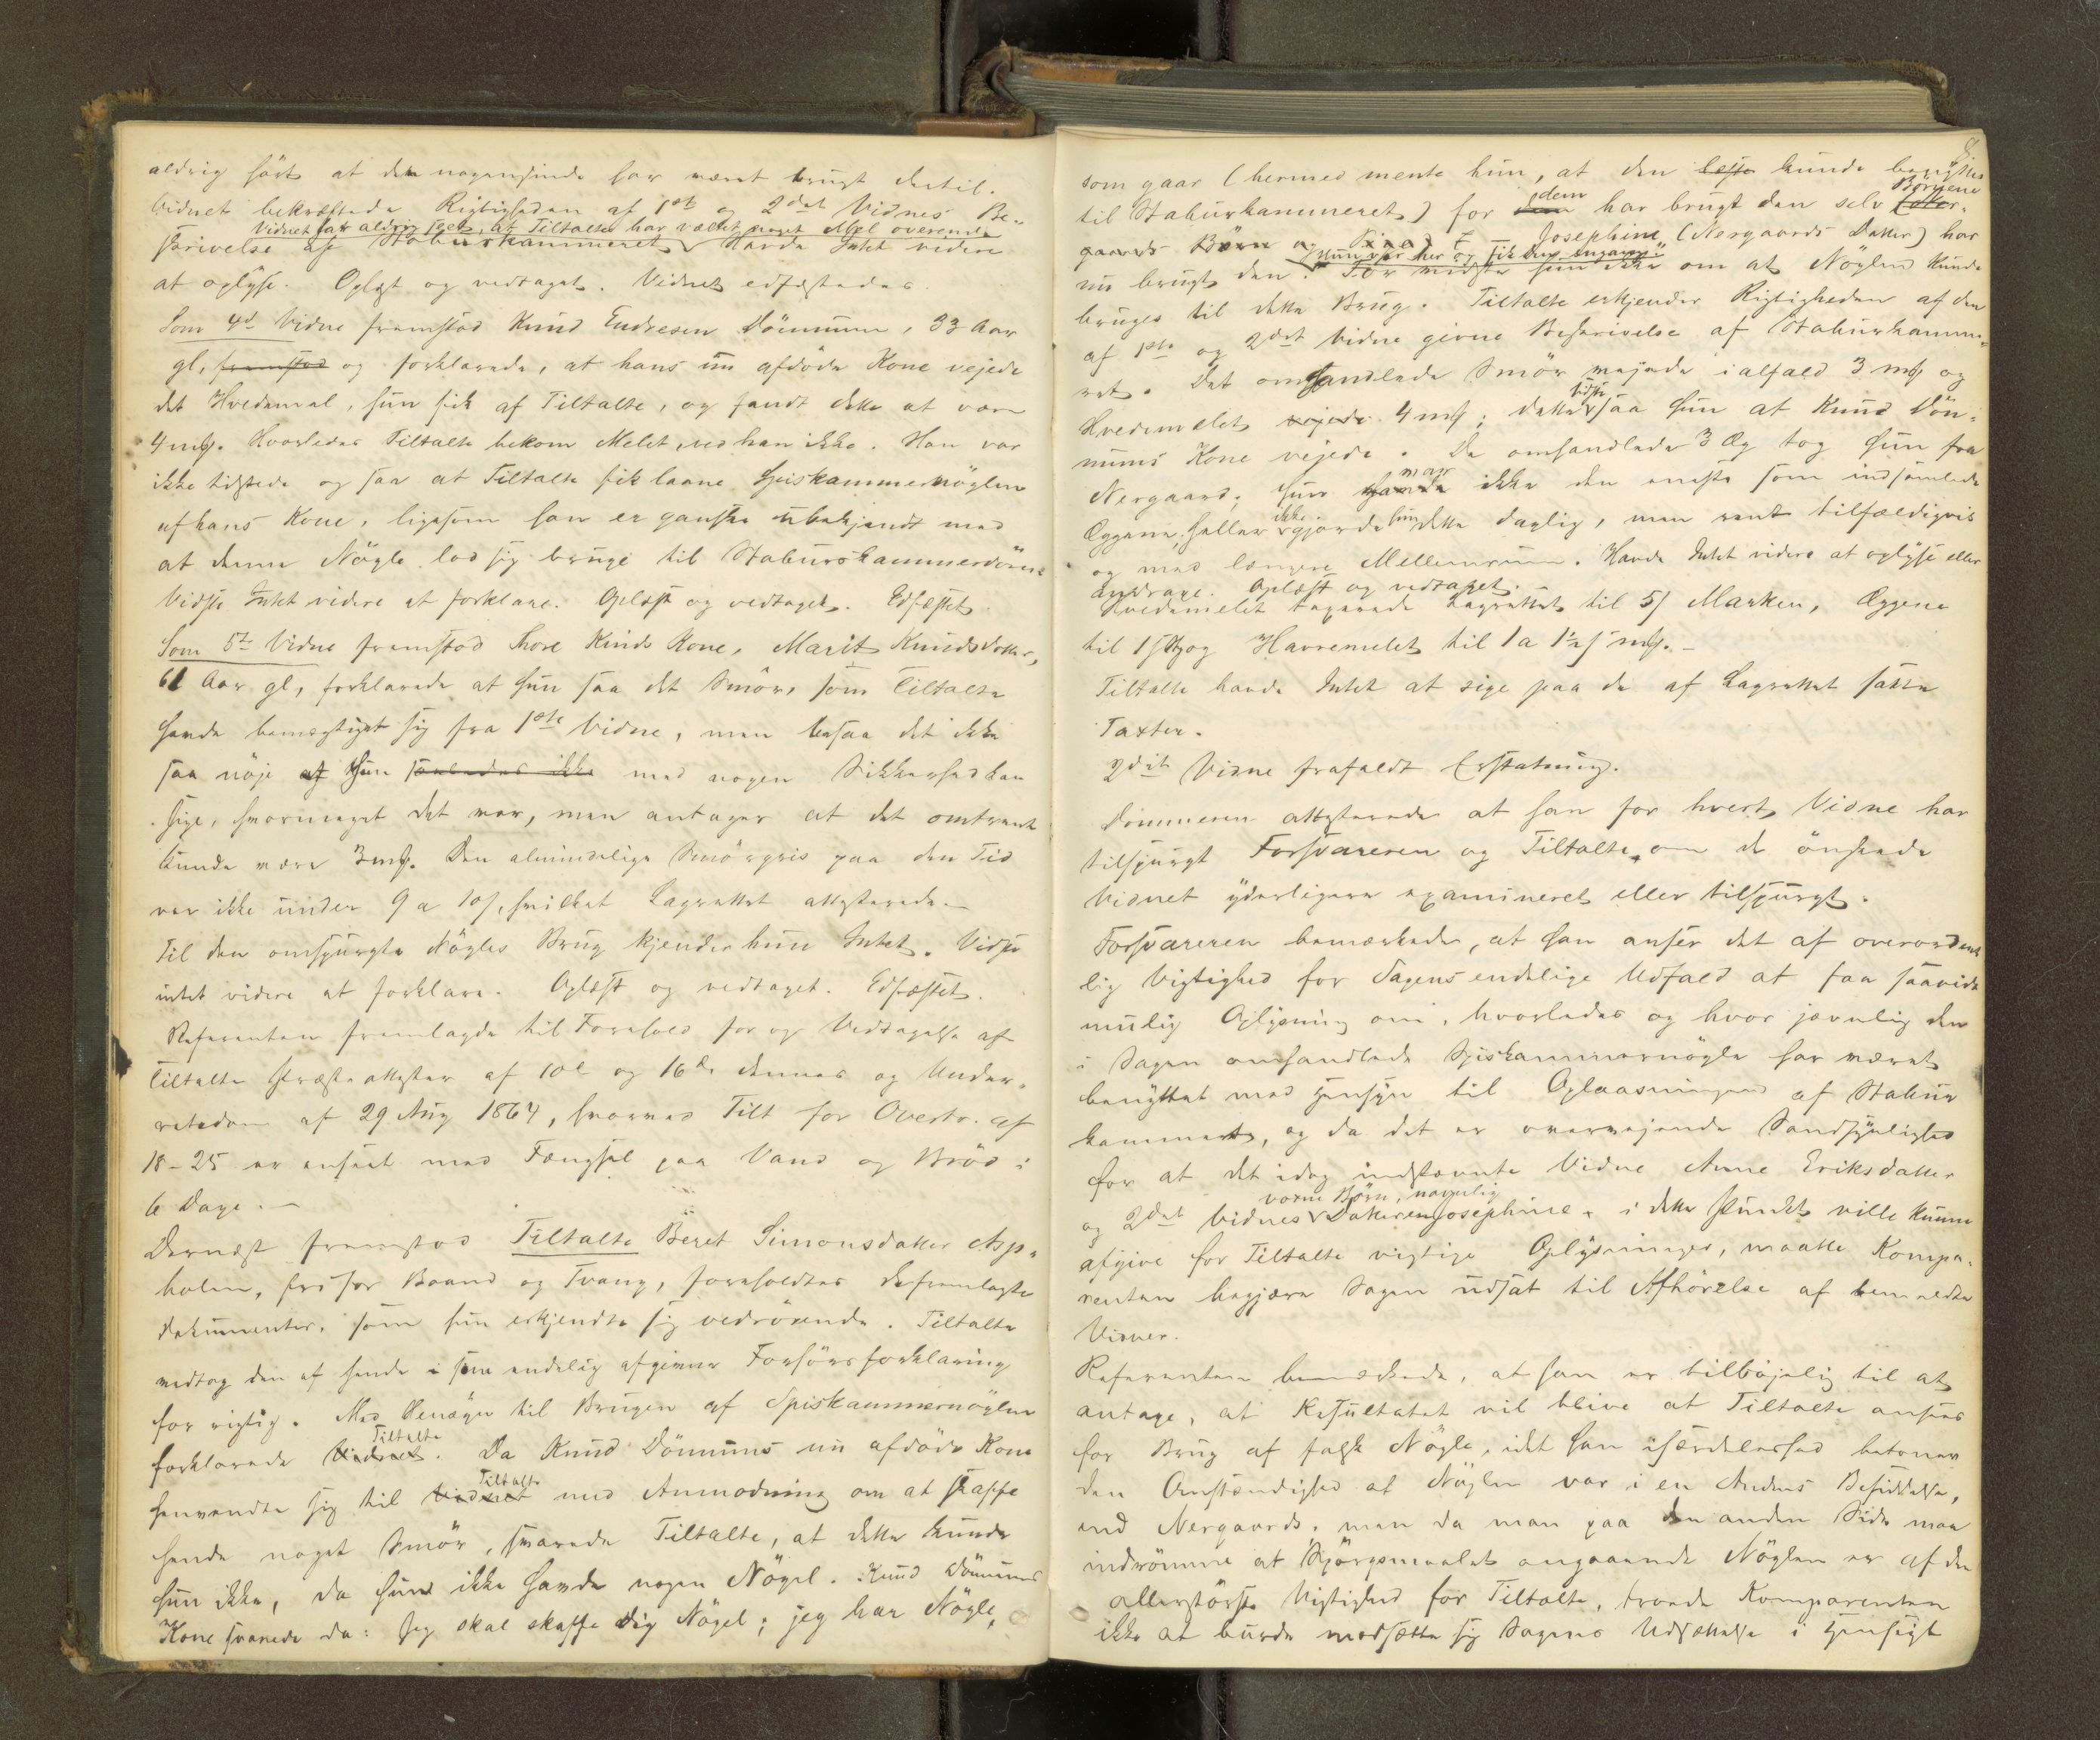 aldrig hørt at den nogensinde har været brugt dertil.
Vidnet bekræftede Rigtigheden af 1ste og 2det Vidnes Be-
Vidnet har aldrig seet, at Tiltalte har væltet noget Mel overende
skrivelse af Staburskammeret. Havde Intet videre
at oplyse. Oplæst og vedtaget. Vidnet edfæstedes.
Som 4de Vidne fremstod Knud Endresen Dönnum, 33 Aar
gl, fremstod og forklarede, at hans nu afdöde Kone vejede
det Hvedemel, hun fik af Tiltalte, og fandt dette at være
4 mk. Hvorledes Tiltalte bekom Melet, ved han ikke. Han var
ikke tilstede og saa at Tiltalte fik laane Spiskammernöglen
af hans Kone, ligesom han er ganske ubekjendt med
at denne Nögle lod sig bruge til Staburskammerdören
Vidste Intet videre at forklare. Oplæst og vedtaget. Edfæstet.
Som 5te Vidne fremstod Thore Kinds Kone, Marit Knudsdatter,
61 Aar gl, forklarede at hun saa det Smör, som Tiltalte
havde bemægtiget sig fra 1ste Vidne, men besaa det ikke
saa nöje at hun saaledes ikke med nogen Sikkerhed kan
sige, hvormeget det var, men antager at det omtrent
kunde være 3 mk. Den almindelige Smörpris paa den Tid
var ikke under 9 a 10 s, hvilket Lagrettet attesterede.-
Til den omspurgte Nögles Brug kjender hun Intet. Vidste
intet videre at forklare. Oplæst og vedtaget. Edfæstet.
Referenten fremlagde til Forehold for og Vedtagelse af
Tiltalte Præsteattester af 10de og 16de dennes og Under-
retsdom af 29 Aug 1864, hvorved Tilt for Overtr. af
18-25 er anseet med Fængsel paa Vand og Bröd i
6 Dage.-
Dernæst fremstod Tiltalte Beret Simonsdatter Asp-
holen, fri for Baand og Tvang, foreholdtes de fremlagte
Dokumenter, som hun erkjendte sig vedrörende. Tiltalte
vedtog den af hende i sin endelig afgivne Forhörsforklaring
for rigtig. Med Hensyn til Brugen af Spiskammernöglen
Tiltalte
forklarede Vidnet. Da Knud Dönnums nu afdöde Kone
Tiltalte
henvendte sig til Vidnet med Anmodning om at skaffe
hende noget Smör, svarede Tiltalte, at dette kunde
hun ikke, da hun ikke havde nogen Nögel. Knud Dönnums
Kone svarede da: Jeg skal skaffe Dig Nögel; jeg har Nögle,
8
som gaar (hermed mente hun, at den kunde benyttes
dem Börnene
til Staburkammeret) for har brugt den selv
gaards Börn og Josephine (Nergaards Datter) har
"Hun var her og fik den engang."
nu brugt den. För vidste hun ikke om at Nöglen kunde
bruges til dette Brug. Tiltalte erkjender Rigtigheden af den
af 1ste og 2det Vidne givne Beskrivelse af Staburkamme-
ret. Det omhandlede Smör vejede ialfald 3 mk og
sidste
Hvedemelet vejede 4 mk; dette saa hun at Knud Dön-
nums Kone vejede. De omhandlede 3 Æg tog hun fra
var
Nergaard; hun havde ikke den eneste som indsamlede
ikke hun
Æggene, heller gjorde dette daglig, men rent tilfældigvis
og med længere Mellemrum. Havde Intet videre at oplyse eller
andrage. Oplæst og vedtaget.
Hvedemelet taxerede Lagrettet til 5 s Marken, Æggene
til 1 s Stk og Havremelet til 1 a 1½ s mk.-
Tiltalte havde Intet at sige paa de af Lagrettet satte
Taxter.
2det Vidne frafaldt Erstatning.
Dommeren attesterede at han for hvert Vidne har
tilspurgt Forsvareren og Tiltalte, om de önskede
Vidnet yderligere examineret eller tilspurgt.
Forsvareren bemærkede, at han anser det af overordent
lig Vigtighed for Sagens endelige Udfald at faa saavidt
mulig Oplysning om, hvorledes og hvor jevnlig den
i Sagen omhandlede Spiskammernögle har været
benyttet med Hensyn til Oplaasningen af Stabur
kammeret, og da det er overvejende Sandsynlighed
for at det idag indstævnte Vidne Anne Eriksdatter
vorne Börn, navnlig
og 2det Vidnes Datteren Josephine, i dette Punkt ville kunne
afgive for Tiltalte vigtige Oplysninger, maatte Kompa-
renten begjære Sagen udsat til Afhörelse af bemeldte
Vidner.
Referenten bemærkede, at han er tilböjelig til at
antage, at Resultatet vil blive at Tiltalte ansees
for Brug af falsk Nögle, idet han isærdeleshed betoner
den Omstændighed at Nöglen var i en Andens Besiddelse,
end Nergaards, men da man paa den anden Side maa
indrömme at Spörgsmaalet angaaende Nöglen er af den
allerstörste Vigtighed for Tiltalte, troede Komparenten
ikke at burde modsætte sig Sagens Udsættelse i Hensigt